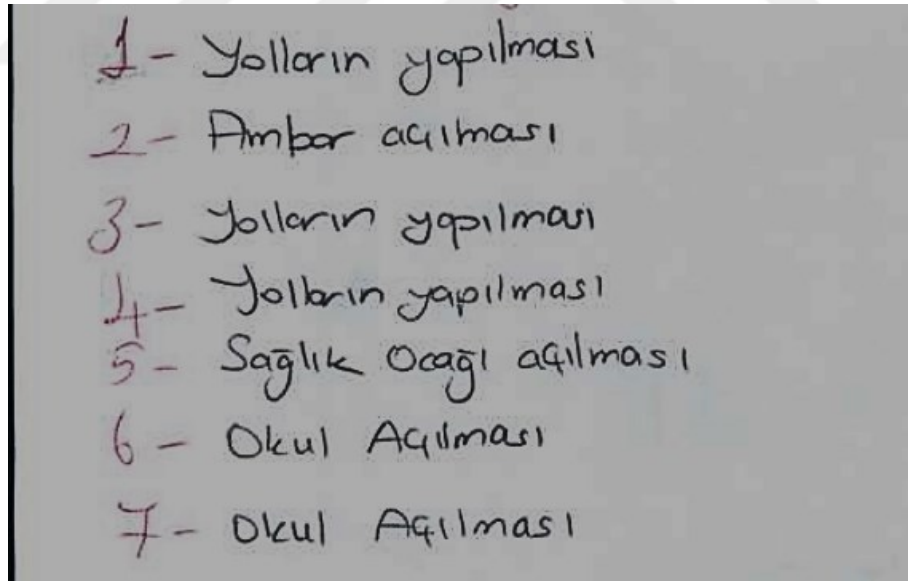 1- Yolların yapılması
2- Ambar açılması
3- Yolların yapılması
4- Yolların yapılması
5- Sağlık Ocağı açılması
6- Okul Açılması
7- Okul Açılması